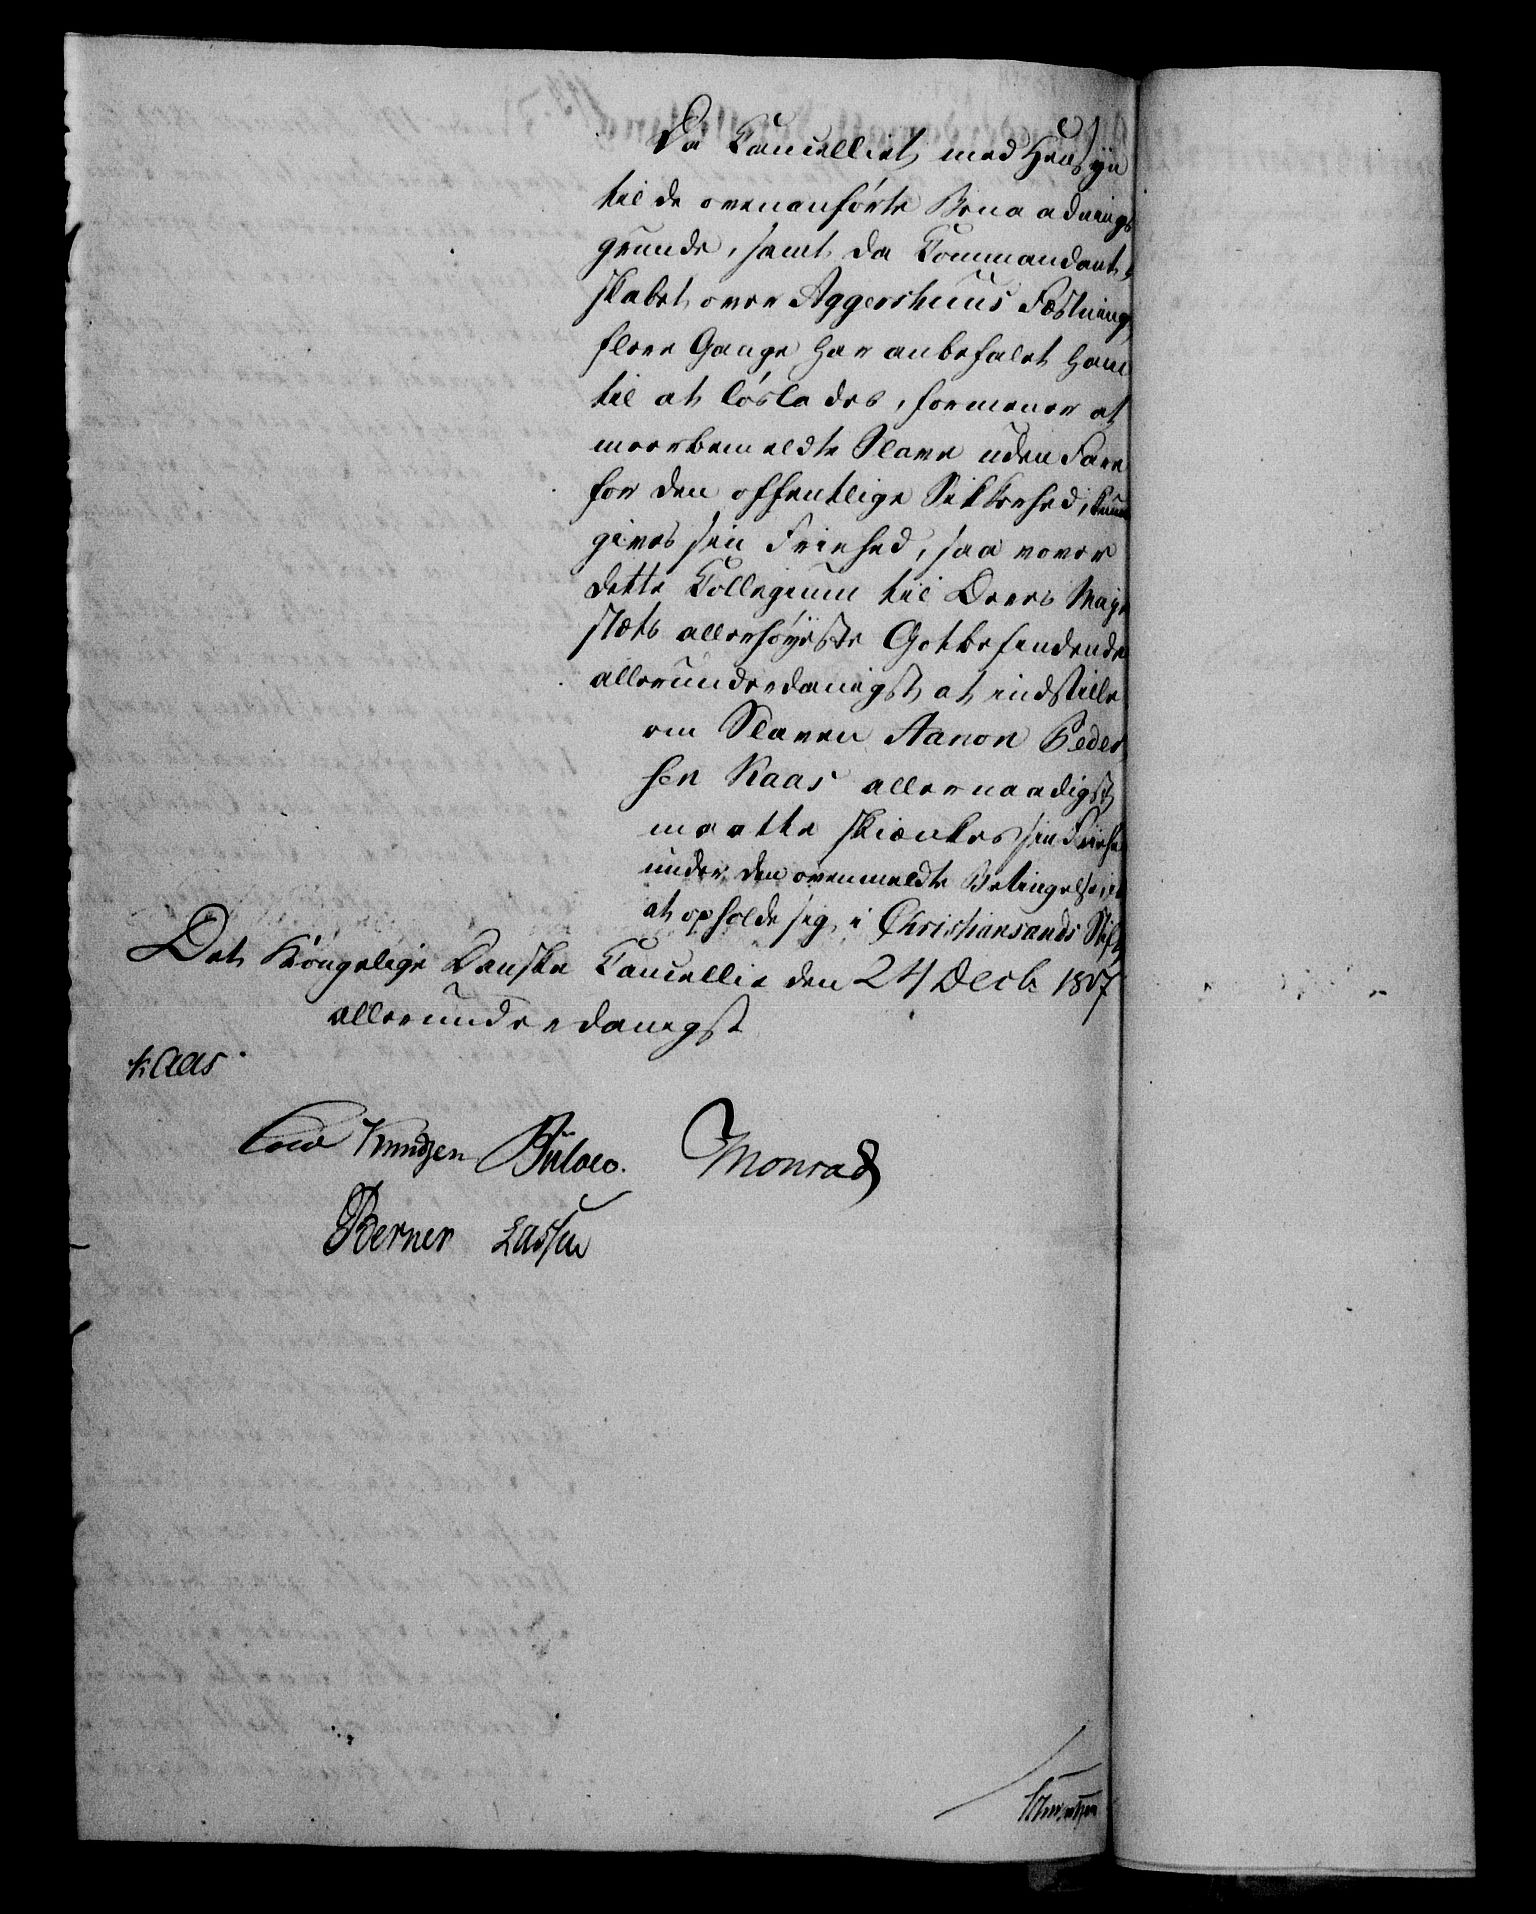 Da Cancelliet med Hensyn
til de ovenanførte Benaadnings
grunde, samt da Commandant,
skabet over Aggershuus Fæstning,
flere Gange har anbefalet ham
til at løslades, formener at
meerbemeldte Slave uden Fare
for den offentlige Sikkerhed, kunne
gives sin Friehed, saa vover
dette Collegium til Deres Maje
stæts allerhøyeste Gotbefindende
allerunderdanigst at indstille
om Slaven Aanon Peder,
sen Kaas allernaadigst
maatte skienkes sin Friehed
under den ovenmeldte Betingelse,
at opholde sig i Christiansands Stift,
Det Kongelige Danske Cancellie den 24 Decbr 1807
allerunderdanigst
Kaas.
Knudzen Bülow. Monrad
Berner Lassen